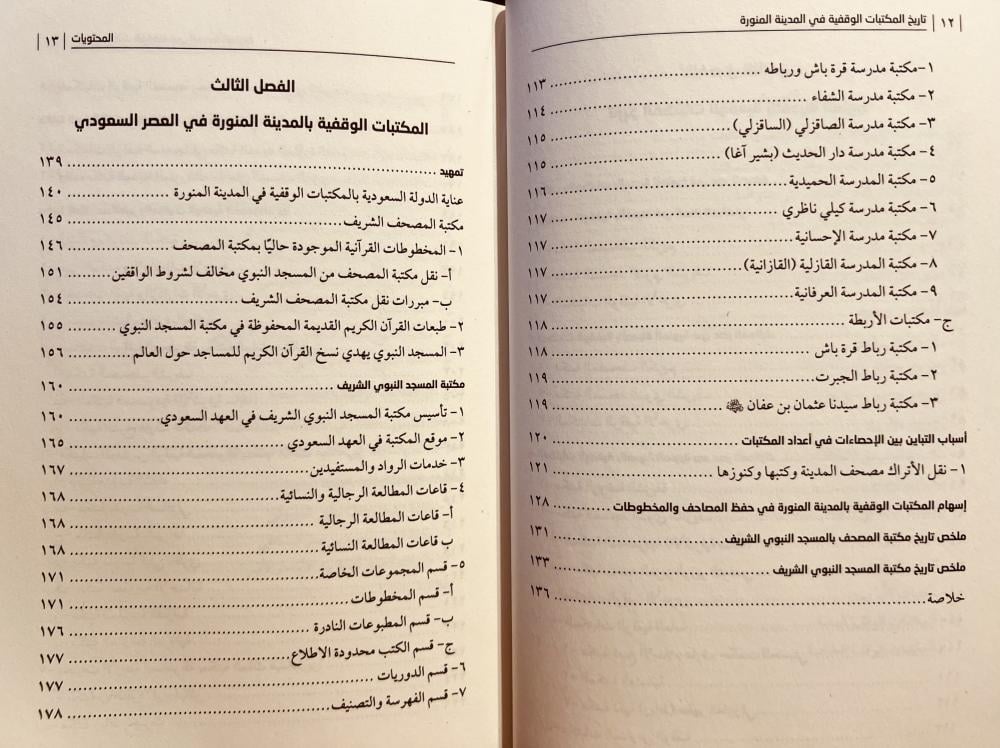 | ١٢ | تاريخ المكتبات الوقفية في المدينة المنورة
١- مكتبة مدرسة قرة باش ورباطه ........ ١١٣
٢- مكتبة مدرسة الشفاء ........ ١١٤
٣- مكتبة مدرسة الصاقزلي (الساقزلي) ........ ١١٥
٤- مكتبة مدرسة دار الحديث (بشير آغا) ........ ١١٥
٥- مكتبة المدرسة الحميدية ........ ١١٦
٦- مكتبة مدرسة كيلي ناظري ........ ١١٧
٧- مكتبة مدرسة الإحسانية ........ ١١٧
٨- مكتبة المدرسة القازلية (القازانية) ........ ١١٧
٩- مكتبة المدرسة العرفانية ........ ١١٧
ج- مكتبات الأربطة ........ ١١٨
١- مكتبة رباط قرة باش ........ ١١٨
٢- مكتبة رباط الجبرت ........ ١١٩
٣- مكتبة رباط سيدنا عثمان بن عفان ........ ١١٩
أسباب التباين بين الإحصاءات في أعداد المكتبات ........ ١٢٠
١- نقل الأتراك مصحف المدينة وكتبها وكنوزها ........ ١٢١
إسهام المكتبات الوقفية بالمدينة المنورة في حفظ المصاحف والمخطوطات ........ ١٢٨
ملخص تاريخ مكتبة المصحف بالمسجد النبوي الشريف ........ ١٣١
ملخص تاريخ مكتبة المسجد النبوي الشريف ........ ١٣٣
خلاصة ........ ١٣٦
المحتويات | ١٣ |
الفصل الثالث
المكتبات الوقفية بالمدينة المنورة في العصر السعودي
تمهيد ........ ١٣٩
عناية الدولة السعودية بالمكتبات الوقفية في المدينة المنورة ........ ١٤٠
مكتبة المصحف الشريف ........ ١٤٥
١- المخطوطات القرآنية الموجودة حاليًا بمكتبة المصحف ........ ١٤٦
أ- نقل مكتبة المصحف من المسجد النبوي مخالف لشروط الواقفين ........ ١٥١
ب- مبررات نقل مكتبة المصحف الشريف ........ ١٥٤
٢- طبعات القرآن الكريم القديمة المحفوظة في مكتبة المسجد النبوي ........ ١٥٥
٣- المسجد النبوي يهدي نسخ القرآن الكريم للمساجد حول العالم ........ ١٥٦
مكتبة المسجد النبوي الشريف ........ ١٦٠
١- تأسيس مكتبة المسجد النبوي الشريف في العهد السعودي ........ ١٦٠
٢- موقع المكتبة في العهد السعودي ........ ١٦٥
٣- خدمات الرواد والمستفيدين ........ ١٦٧
٤- قاعات المطالعة الرجالية والنسائية ........ ١٦٨
أ- قاعات المطالعة الرجالية ........ ١٦٨
ب قاعات المطالعة النسائية ........ ١٦٨
٥- قسم المجموعات الخاصة ........ ١٧١
أ- قسم المخطوطات ........ ١٧١
ب- قسم المطبوعات النادرة ........ ١٧٦
ج- قسم الكتب محدودة الاطلاع ........ ١٧٧
٦- قسم الدوريات ........ ١٧٧
٧- قسم الفهرسة والتصنيف ........ ١٧٨